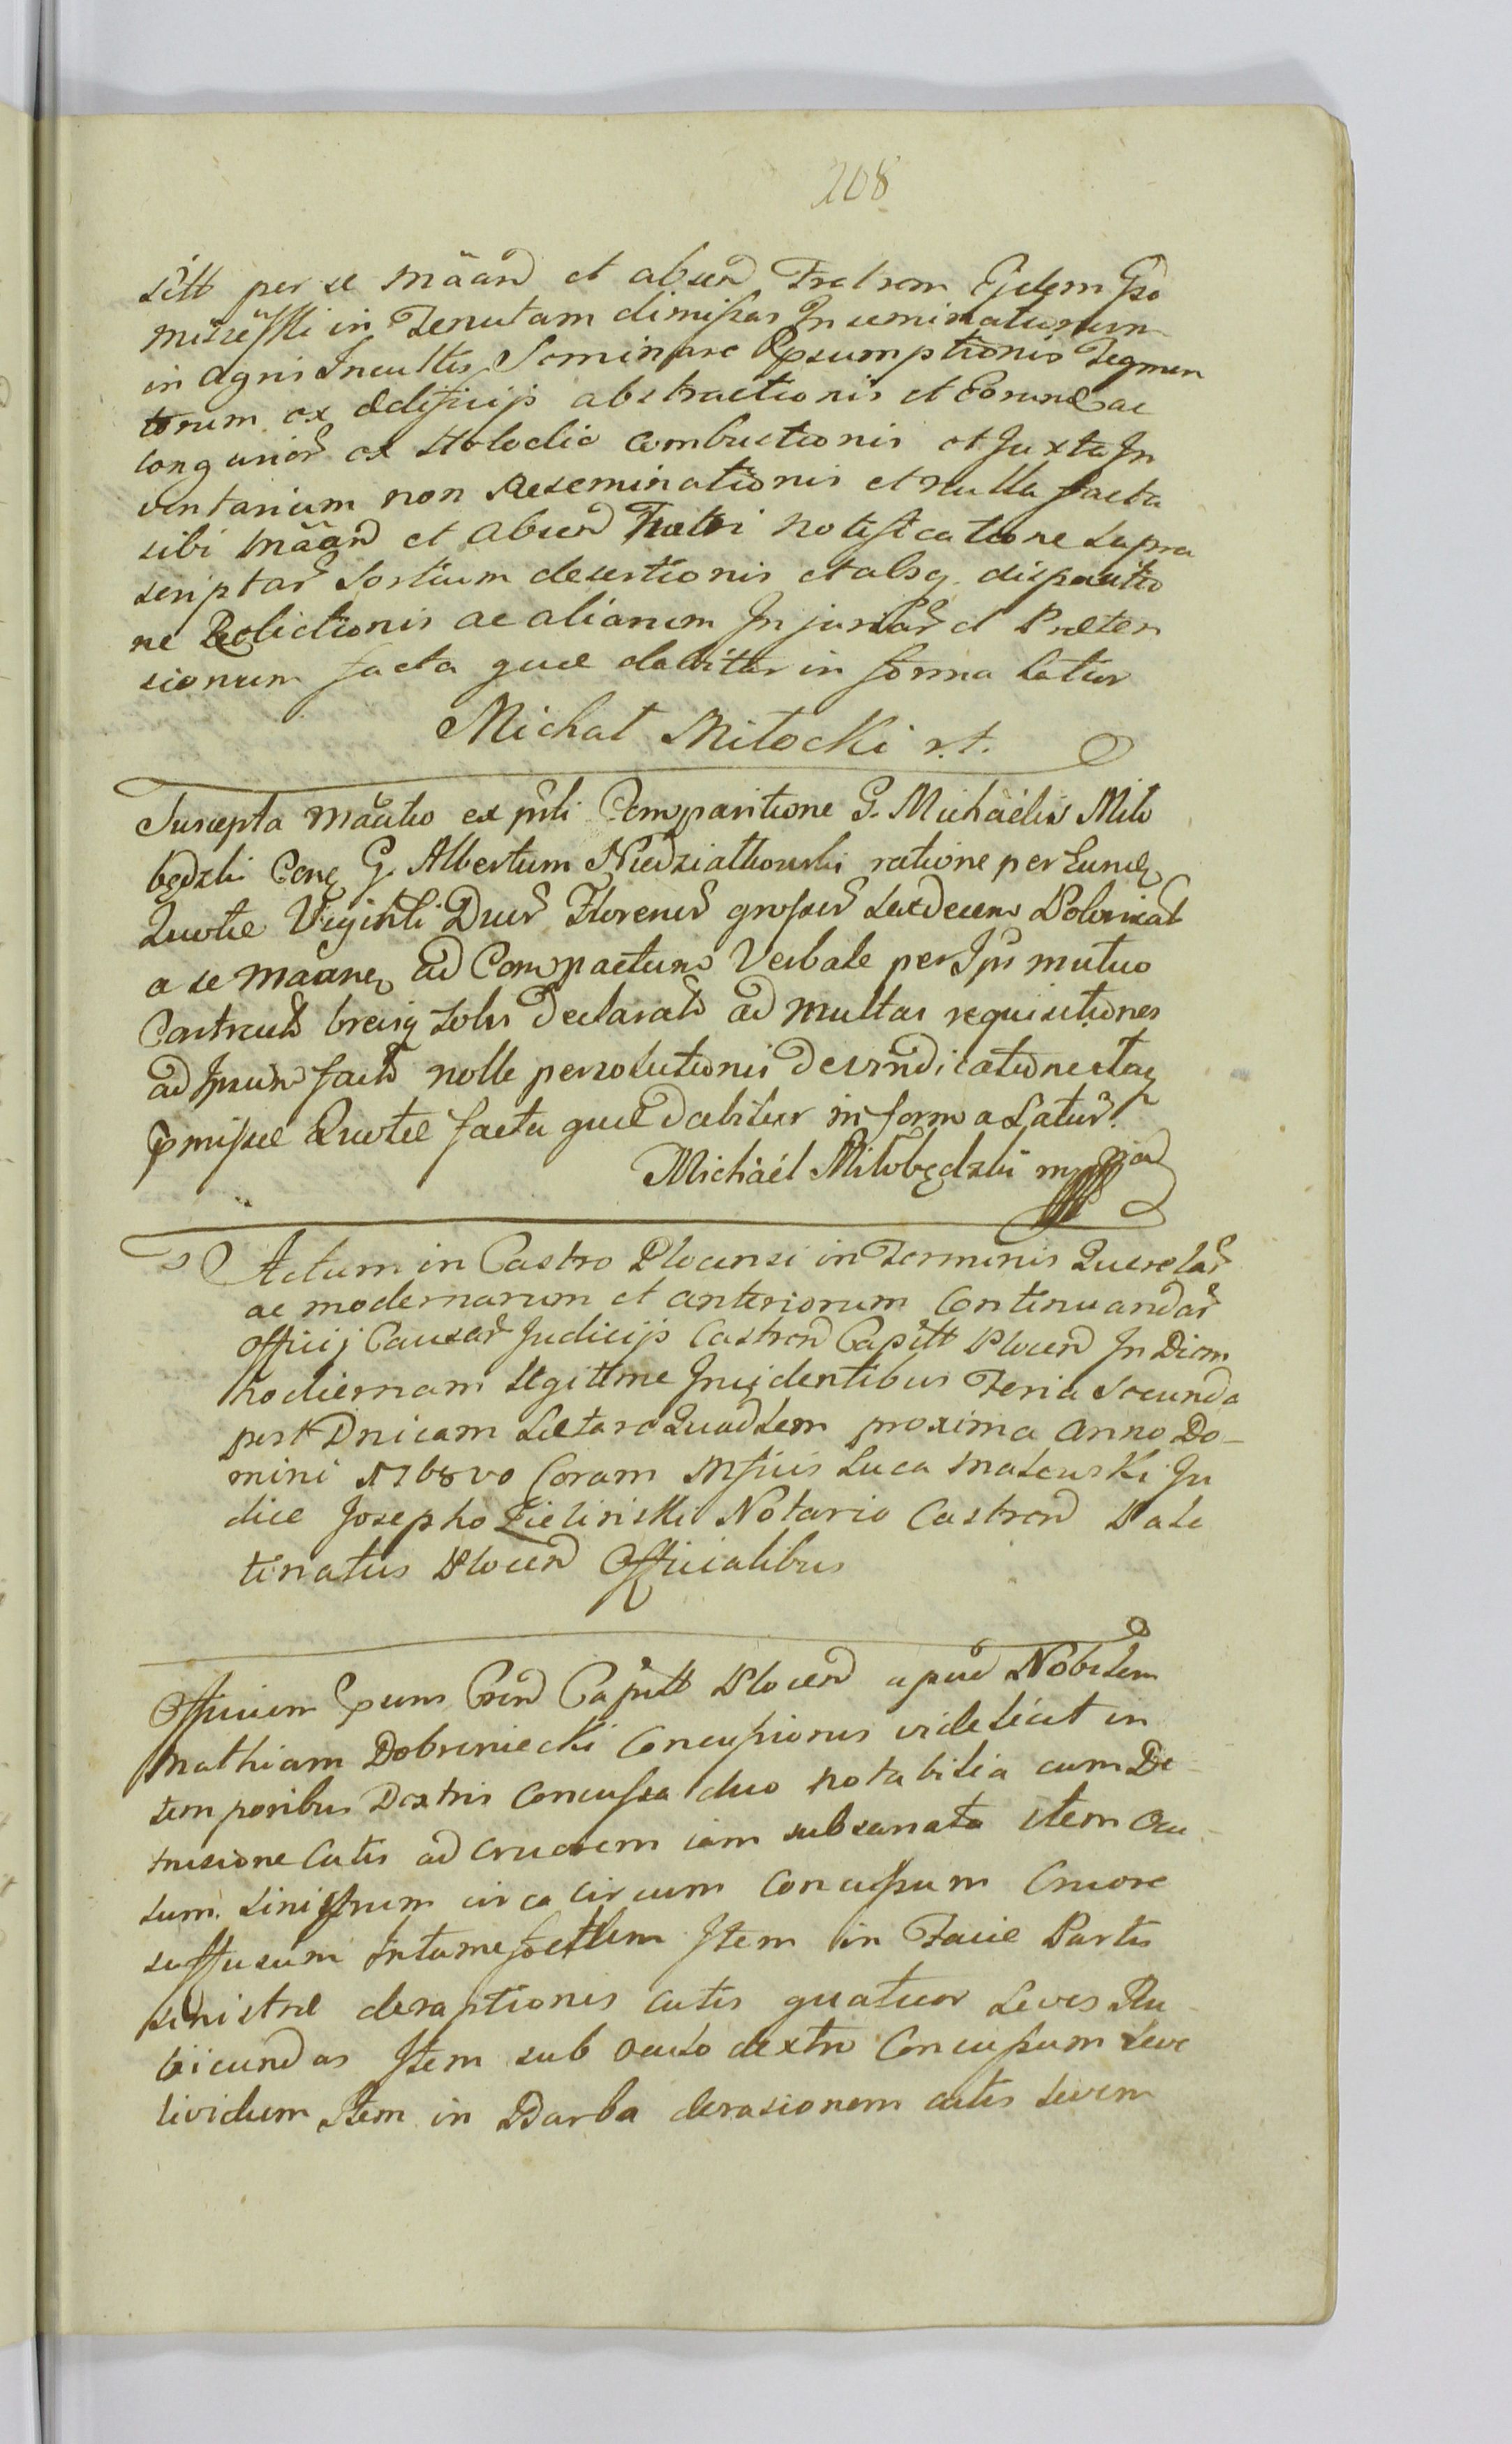 208
sitt per se Mãand et absend Fratrem Ejdem Gso
in Tenutam dimissas Inseminaturarum
in agris Incultis Seminare Resumptionis Tegmen
torum ex Ædificijs abstractionis et Eorund ac
longurior ex Stolodio combustionis et Juxta In
ventarium non Reseminationis et nulla facta
sibi Mãand et absend Fratri notificatione supra
scriptar sortium desertionis et absq dispositio
ne Relictionis ac aliarum Injuriar et Præten
sionum facta quæ dabitur in forma latior
Michał Miłocki r.t.
Suscepta Mãatio ex pnti Comparitione G. Michaelis Miło
będzki Cong G. Albertum Niedziałkowski ratione per Eundq
Quotæ Viginti Duor Florenor grossor sexdecem Polonicał
a se Mãanq ad Compactum Verbale per Ips mutuo
Contract breviq solvi declarat ad multas requisitiones
ad Ipsum fact nolle persolutionis de vindicatione itaq
pmissæ Quotæ facta quæ dabitur in forma Latior.
Michaél Miłobędzki mpp
Actum in Castro Plocensi in Terminis Querelar
ac modernarum et anteriorum Continuandar
Officij Causar Judicijs Castren Capitt Plocen In Diem
hodiernam legittme Incidentibus Feria Secunda
post Dnicam Lætare Quadlem proxima Anno Do-
mini 1768vo Coram Mficis Luca Malewski Ju
dice Josepho Zielinski Notario Castren Pala
tinatus Plocen Officialibus
Officium Psens Cren Capitt Plocen apud Nobilem
Mathiam Dobrzniecki Concussiones videlicet in
temporibus Dextris Concussa duo notabilia cum De-
trusione Cutis ad cruorem iam subsanata item Ocu-
lum sinistrum circa circum Concussum Cruore
suffusum Item in Facie Partis
sinistræ deraptiones cutis quatuor Leves Ru-
bicundas Item sub oculo dextro Concussum Leve
lividum Item in Barba derasionem cutis Levem